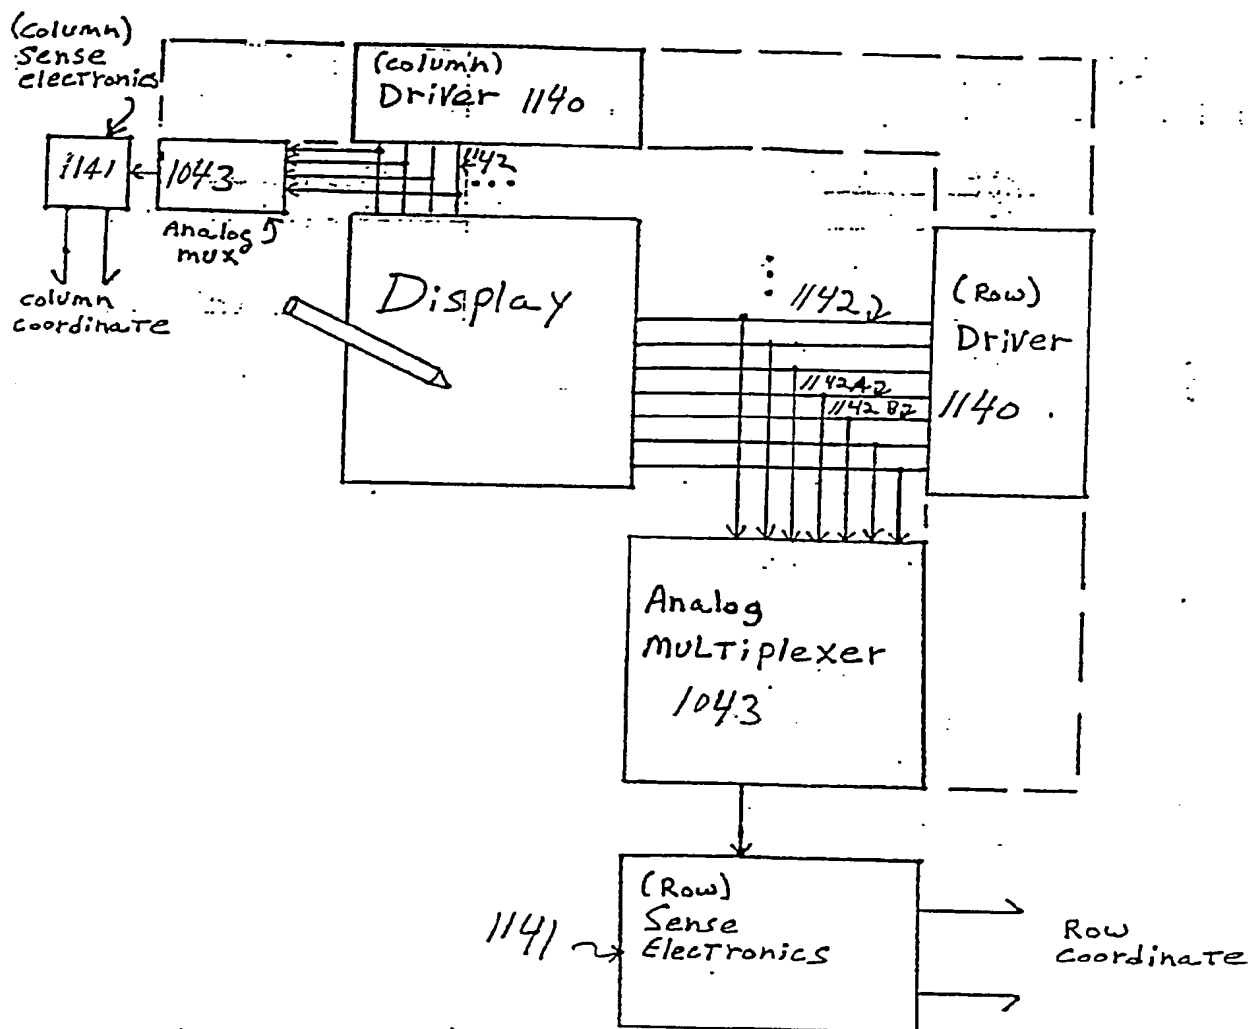 (Column)
Sense
electronics
(Column)
Driver 1140
1141
1043
Analog
mux
1142
column
coordinate
Display
1142
(Row)
Driver
1140
1142A
1142B
Analog
Multiplexer
1043
(Row)
Sense
Electronics
1141
Row
Coordinate